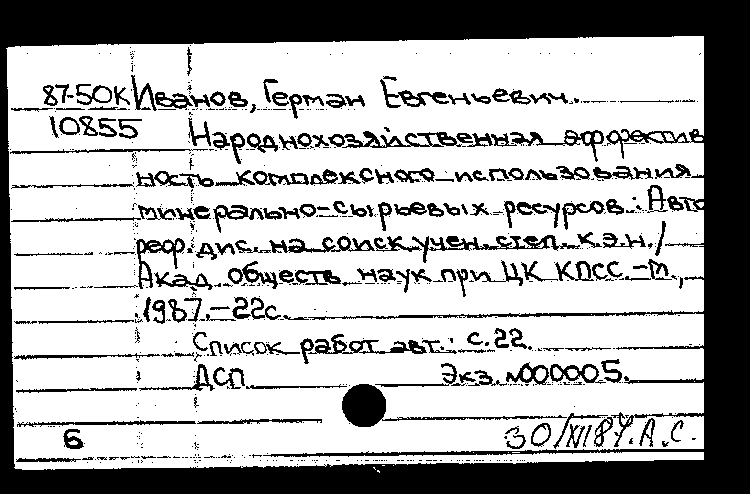 87-50К Иванов, Герман Евгеньевич.
10855 Народнохозяйственная эффектив
ность комплексного использования
минерально-сырьевых ресурсов : Авто
реф. дис. на соиск. учен. степ. к.э.н. /
Акад. обществ. наук при ЦК КПСС. - М.,
1987. - 22с.
Список работ авт.: с. 22.
ДСП Экз. №000005.
6 30/XII 87. А.С.